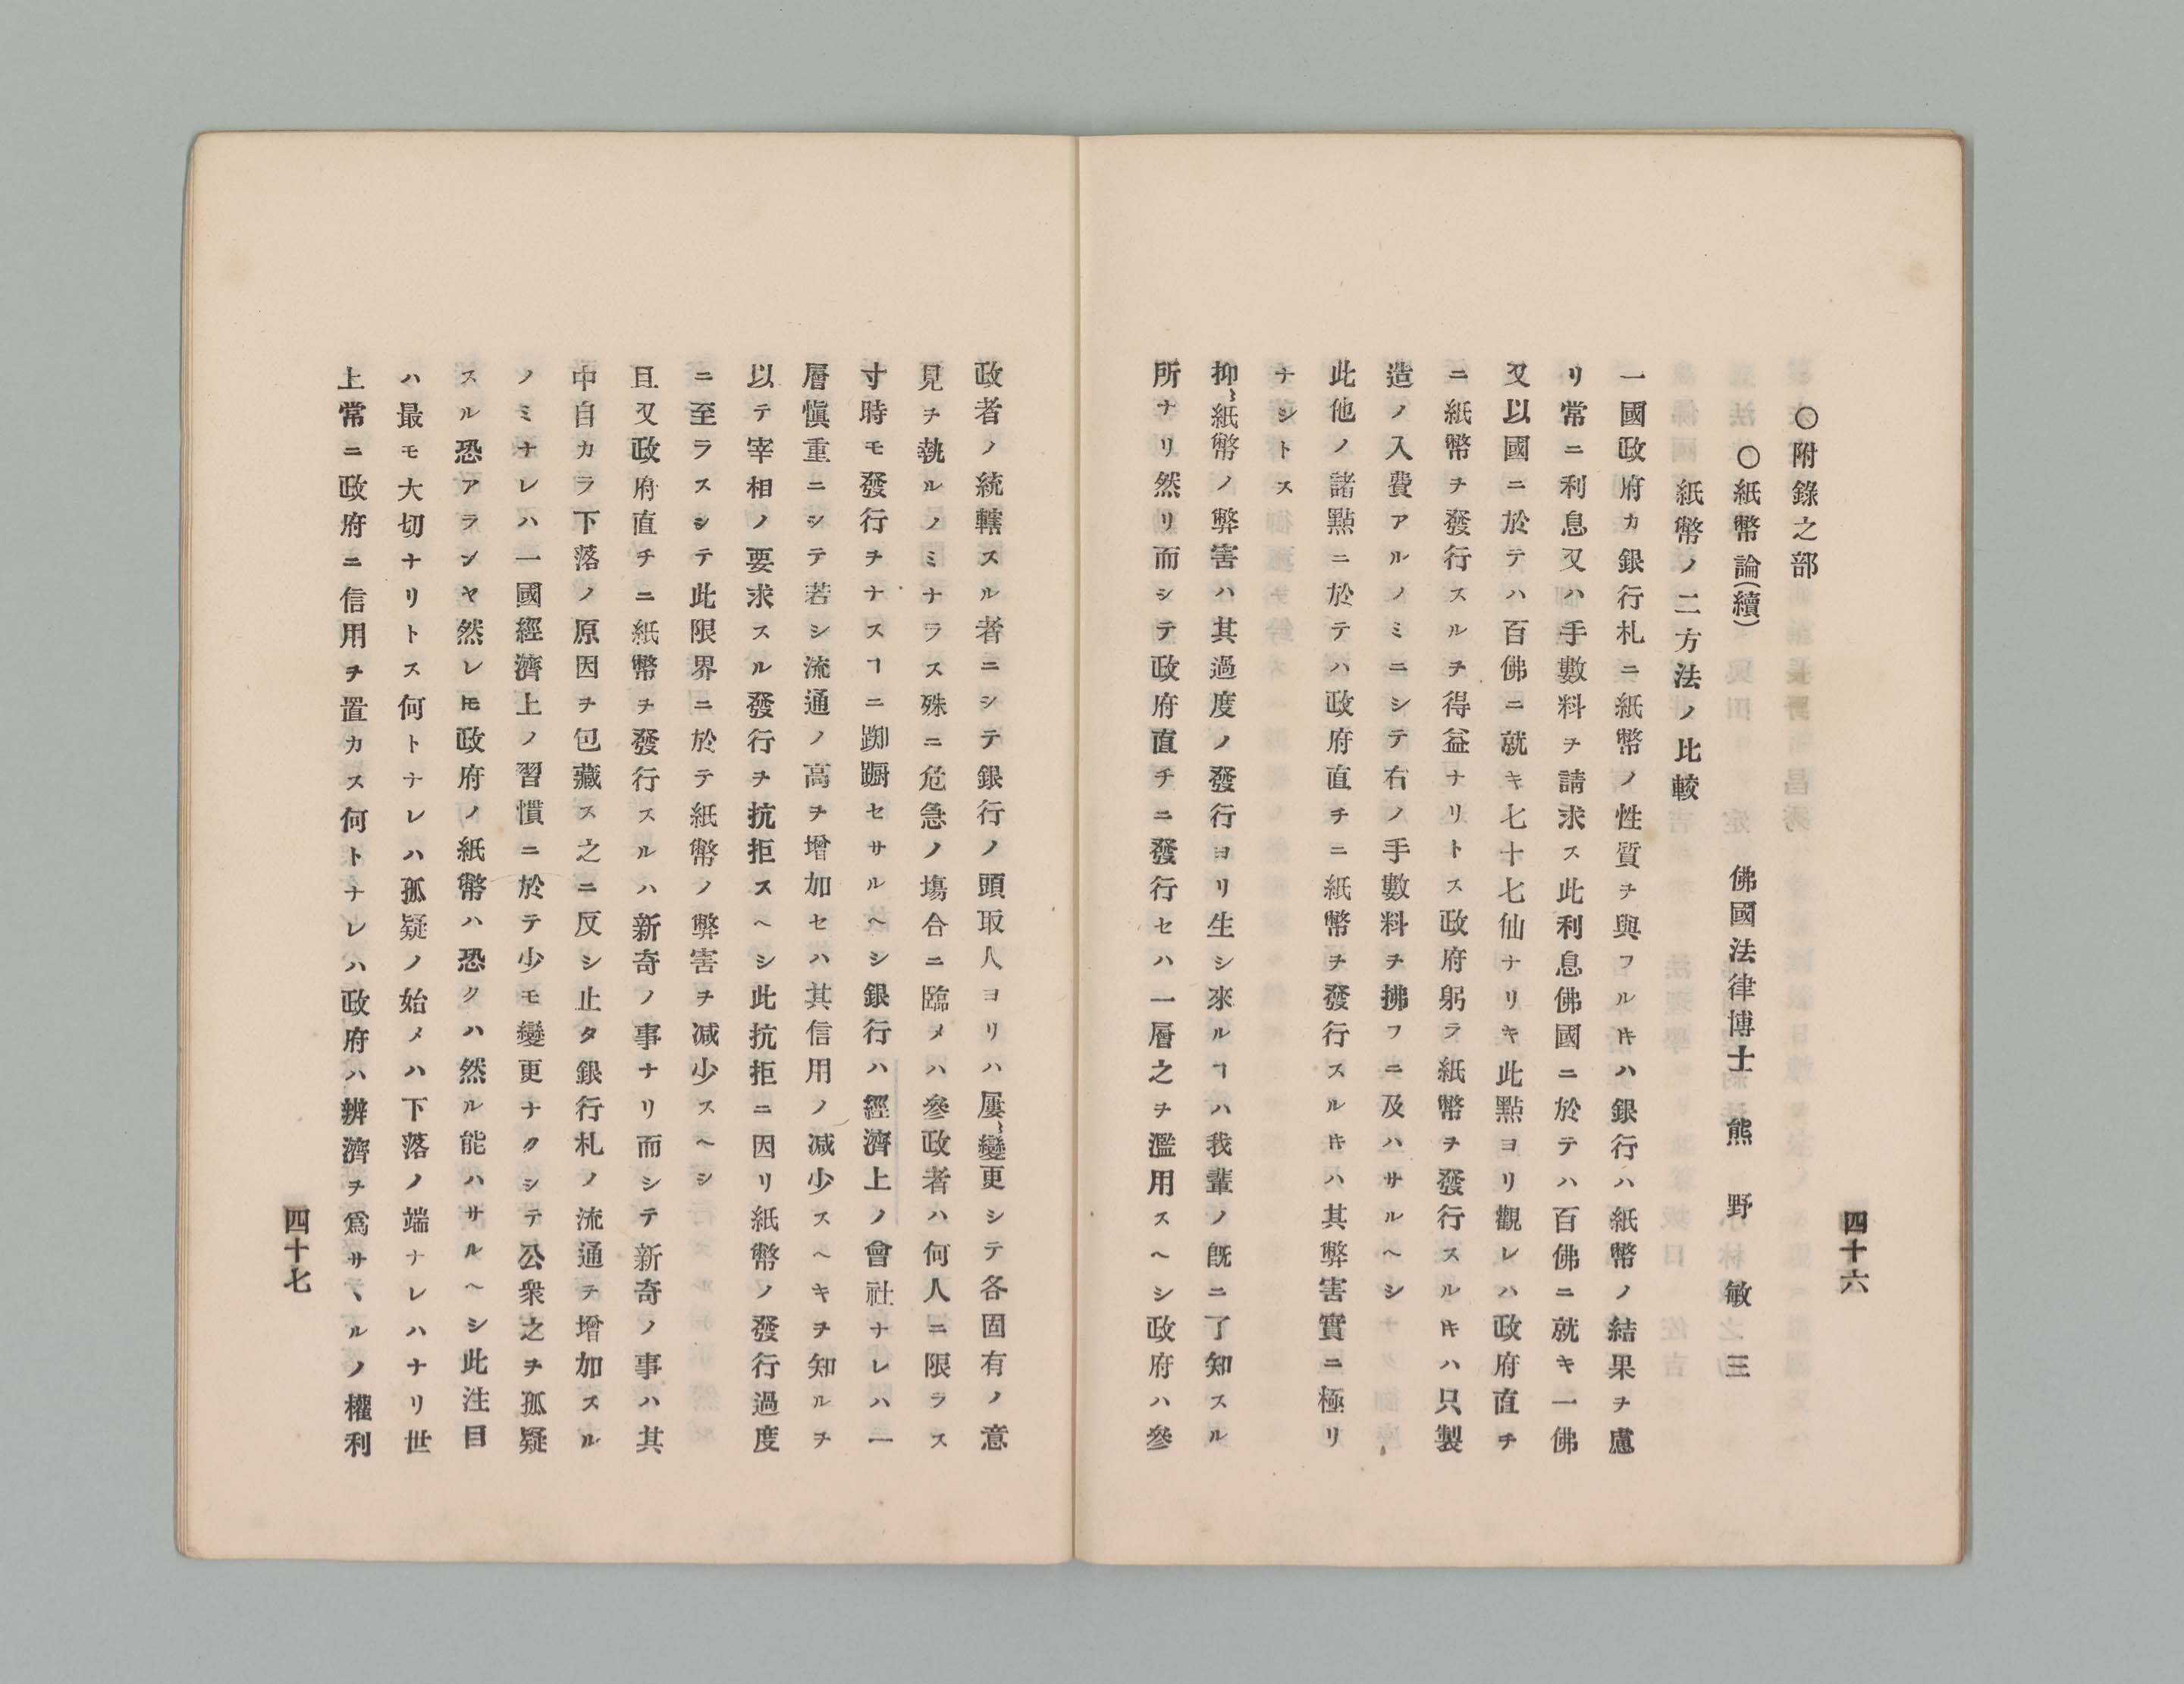 四十六
〇附錄之部
〇紙幣論(續)　佛國法律博士　熊野敏三
紙幣ノ二方法ノ比較
一國政府カ銀行札ニ紙幣ノ性質ヲ與フルキハ銀行ハ紙幣ノ結果ヲ慮
リ常ニ利息又ハ手數料ヲ請求ス此利息佛國ニ於テハ百佛ニ就キ一佛
又以國ニ於テハ百佛ニ就キ七十七仙ナリキ此點ヨリ觀レハ政府直チ
ニ紙幣ヲ發行スルヲ得益ナリトス政府躬ラ紙幣ヲ發行スルキハ只製
造ノ入費アルノミニシテ右ノ手數料ヲ拂フニ及ハサルヘシ
此他ノ諸點ニ於テハ政府直チニ紙幣ヲ發行スルキハ其弊害實ニ極リ
ナシトス
抑〻紙幣ノ弊害ハ其過度ノ發行ヨリ生シ來ルヿハ我輩ノ既ニ了知スル
所ナリ然リ而シテ政府直チニ發行セハ一層之ヲ濫用スヘシ政府ハ參
政者ノ統轄スル者ニシテ銀行ノ頭取人ヨリハ屢〻變更シテ各固有ノ意
見ヲ執ルノミナラス殊ニ危急ノ塲合ニ臨メハ參政者ハ何人ニ限ラス
寸時モ發行ヲナスヿニ踟蹰セサルヘシ銀行ハ經濟上ノ會社ナレハ一
層愼重ニシテ若シ流通ノ高ヲ增加セハ其信用ノ减少スヘキヲ知ルヲ
以テ宰相ノ要求スル發行ヲ抗拒スヘシ此抗拒ニ因リ紙幣ノ發行過度
ニ至ラスシテ此限界ニ於テ紙幣ノ弊害ヲ减少スヘシ
且又政府直チニ紙幣ヲ發行スルハ新奇ノ事ナリ而シテ新奇ノ事ハ其
中自カラ下落ノ原因ヲ包藏ス之ニ反シ止タ銀行札ノ流通ヲ增加スル
ノミナレハ一國經濟上ノ習慣ニ於テ少モ變更ナクシテ公衆之ヲ孤疑
スル恐アランヤ然レ𪜈政府ノ紙幣ハ恐クハ然ル能ハサルヘシ此注目
ハ最モ大切ナリトス何トナレハ孤疑ノ始メハ下落ノ端ナレハナリ世
上常ニ政府ニ信用ヲ置カス何トナレハ政府ハ辨濟ヲ爲サヽルノ權利
四十七